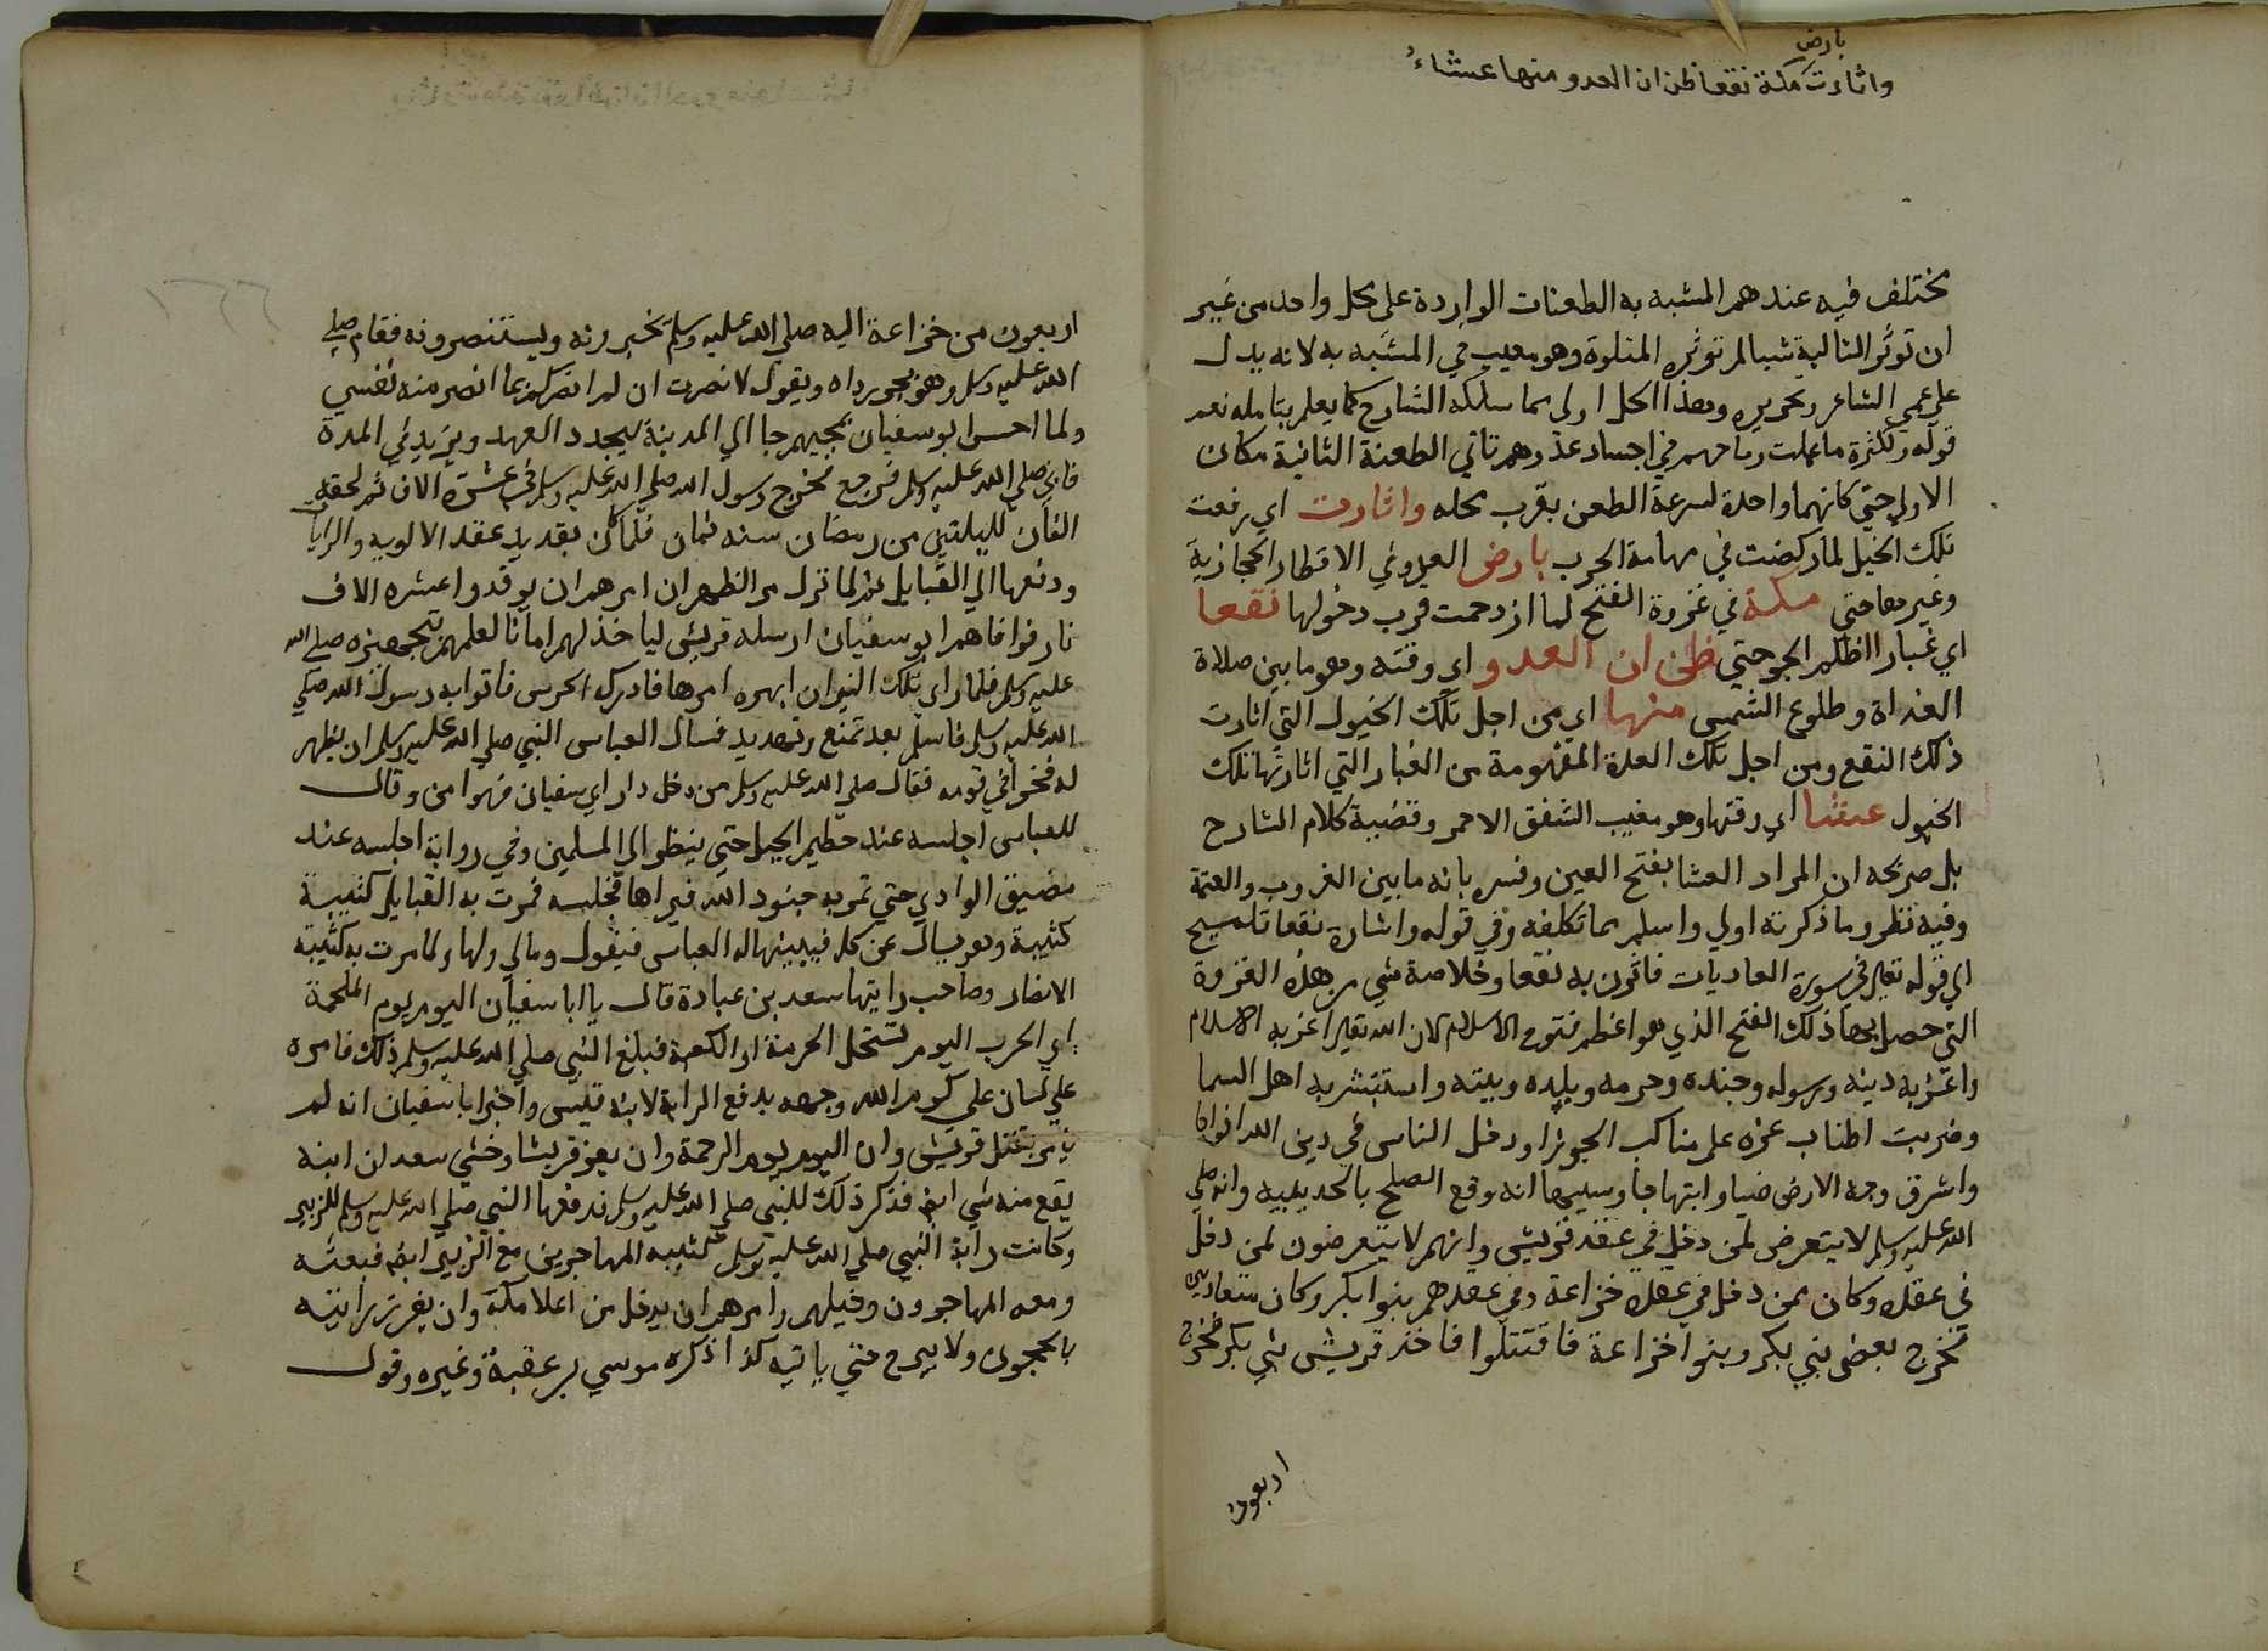 بارض
واثارت مكة نقعا ظن ان الغدو منها عشاءُ
مختلف فيه عندهم المشبه به الطعنات الواردة على محل واحد من غير
ان توثر التالية شيا لم توثره المتلوة وهو معيب في المشبه به لانه يدل
على عمى الشاعر وهذا الحل اولى مما سلكه الشارح كما يعلم بتامله نعم
قوله ولكثرة ما عملت رماحهم في اجساد عدوهم تاتي الطعنة الثانية مكان
الاولي حتي كانهما واحدة لسرعة الطعن بقرب محله واثارت اي رفعت
تلك الخيل لما ركضت في مهامة الحرب بارض العدو في الاقطار الحجازية
وغيرها حتي مكة في غزوة الفتح لما ازدحمت قرب دخولها نقعا
اي غبارا اظلم الجو حتي ظن ان الغدو اي وقته وهو ما بين صلاة
الغداة وطلوع الشمس منها اي من اجل تلك الخيول التي اثارت
ذلك النقع ومن اجل تلك العلة المفهومة من الغبار التي اثارتها تلك
الخيول عشا اي وقتها وهو مغيب الشفق الاحمر وقضية كلام الشارح
بل صريحه ان المراد العشا بفتح العين وفسره بانه ما بين الغروب والعتمة
وفيه نظر وما ذكرته اولي واسلم مما تكلفه وفي قوله واشارة نقعا تلميح
اي قوله تعالى في سورة العاديات فاثرن به نقعا وخلاصة شي من هذه الغزوة
التي حصل بها ذلك الفتح الذي هو اعظم فتوح الاسلام لان الله تعالى اعز به الاسلام
واعز به دينه ورسوله وجنده وحرمه وبلده وبيته واستبشر به اهل السما
وضربت اطناب عزه على مناكب الجوزا ودخل الناس في دين الله افواجا
واشرق وجه الارض ضيا وابتهاجا وسببها انه وقع الصلح بالحديبيه وانه صلي
الله عليه وسلم لا يتعرض لمن دخل في عقد قريش وانهم لا يتعرضون لمن دخل
في عقده وكان ممن دخل في عقده خزاعة وفي عقدهم بنوا بكر وكان متعاديين
فخرج بعض بني بكر وبنوا خزاعة فاقتتلوا فاخذ قريش بني بكر فخرج
اربعون
اربعون من خزاعة اليه صلي الله عليه وسلم يخبرونه ويستنصرونه فقام صلي
الله عليه وسلم وهو يجر رداه ويقول لا نصرت ان لم انصركم بما انصر منه نفسي
ولما احس ابو سفيان بمجيهم جا الي المدينة ليجدد العهد ويزيد في المدة
فابي صلي الله عليه وسلم فرجع فخرج رسول الله صلي الله عليه وسلم في عشرة الاف ثم لحقه
الفان لليلتين من رمضان سنه ثمان فلما كان بقديد عقد الالويه والرايات
ودفعها الي القبايل ثم لما نزل مر الظهران امرهم ان يوقدوا عشره الاف
نار فوافاهم ابو سفيان ارسله قريش لياخذ لهم امانا لعلمهم بتجهزه صلي الله
عليه وسلم فلما راي تلك النيران ابهره امرها فادركه الحرس فاتوا به رسول الله صلي
الله عليه وسلم فاسلم بعد تمنع وتهديد فسال العباس النبي صلي الله عليه وسلم ان يظهر
له فخرا في قومه فقال صلي الله عليه وسلم من دخل دار ابي سفيان فهو امن وقال
للعباس اجلسه عند حطيم الجبل حتي ينظر الي المسلمين وفي رواية اجلسه عند
مضيق الوادي حتي تمر به جنود الله فيراها فجلسه فمرت به القبايل كتيبة
كتيبة وهو يسال عن كل فيبينها له العباس فيقول ومالي ولها ولما مرت به كتيبة
الانصار وصاحب رايتها سعد بن عبادة قال يا ابا سفيان اليوم يوم الملحمة
اي الحرب اليوم تستحل الحرمة او الكعبة فبلغ النبي صلي الله عليه وسلم ذلك فامره
علي لسان علي كرم الله وجهه بدفع الراية لابنه قيس واخبر ابا سفيان انه لم
يامر بقتل قريش وان اليوم يوم الرحمة وان يعز قريشا وخشي سعد ان ابنه
يقع منه شي ايضا فذكر ذلك للنبي صلي الله عليه وسلم فدفعها النبي صلي الله عليه وسلم للزبير
وكانت راية النبي صلي الله عليه وسلم كتيبه المهاجرين مع الزبير ايضا فبعثه
ومعه المهاجرون وخيلهم وامرهم ان يدخل من اعلا مكة وان يغرز رايته
بالحجون ولا يبرح حتي ياتيه كذا ذكره موسي بن عقبة وغيره وقول